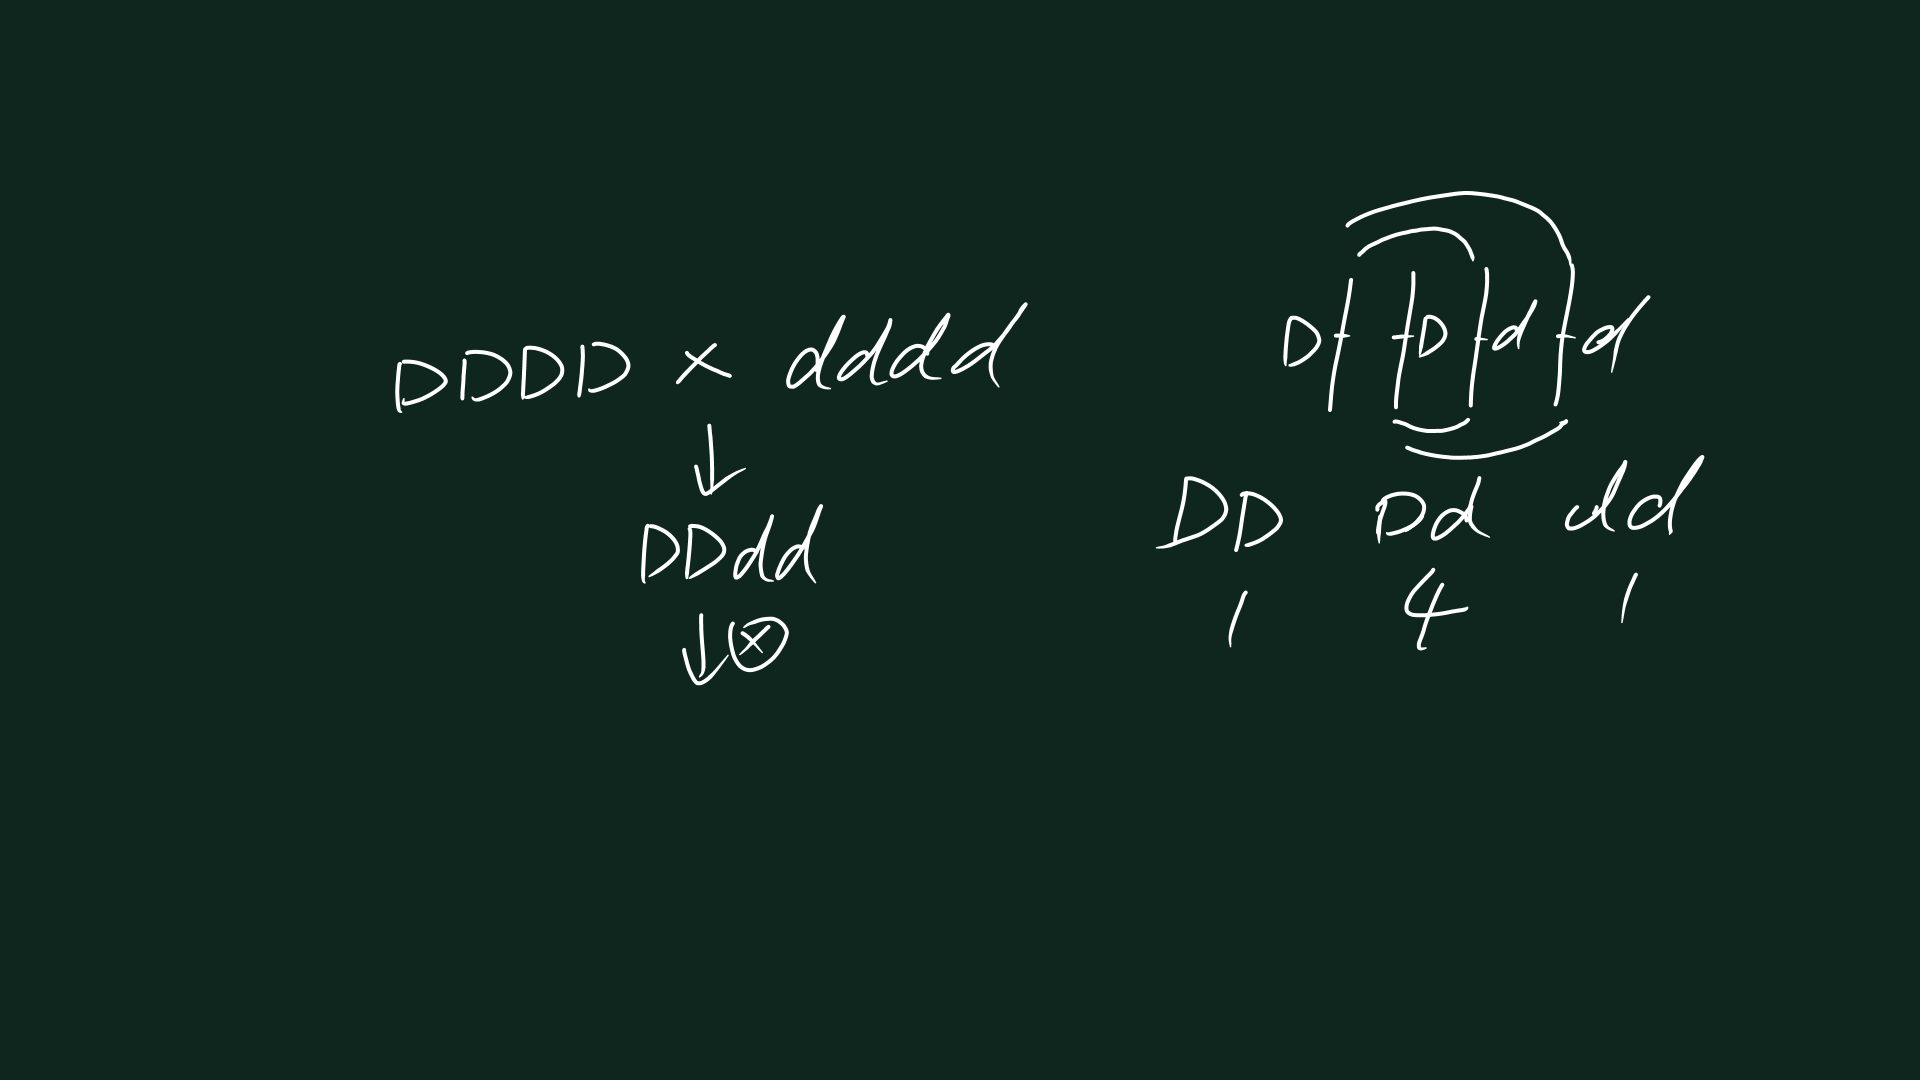 DDDD × dddd
↓
DDdd
↓ⓧ
D D d d
DD Dd dd
1 4 1